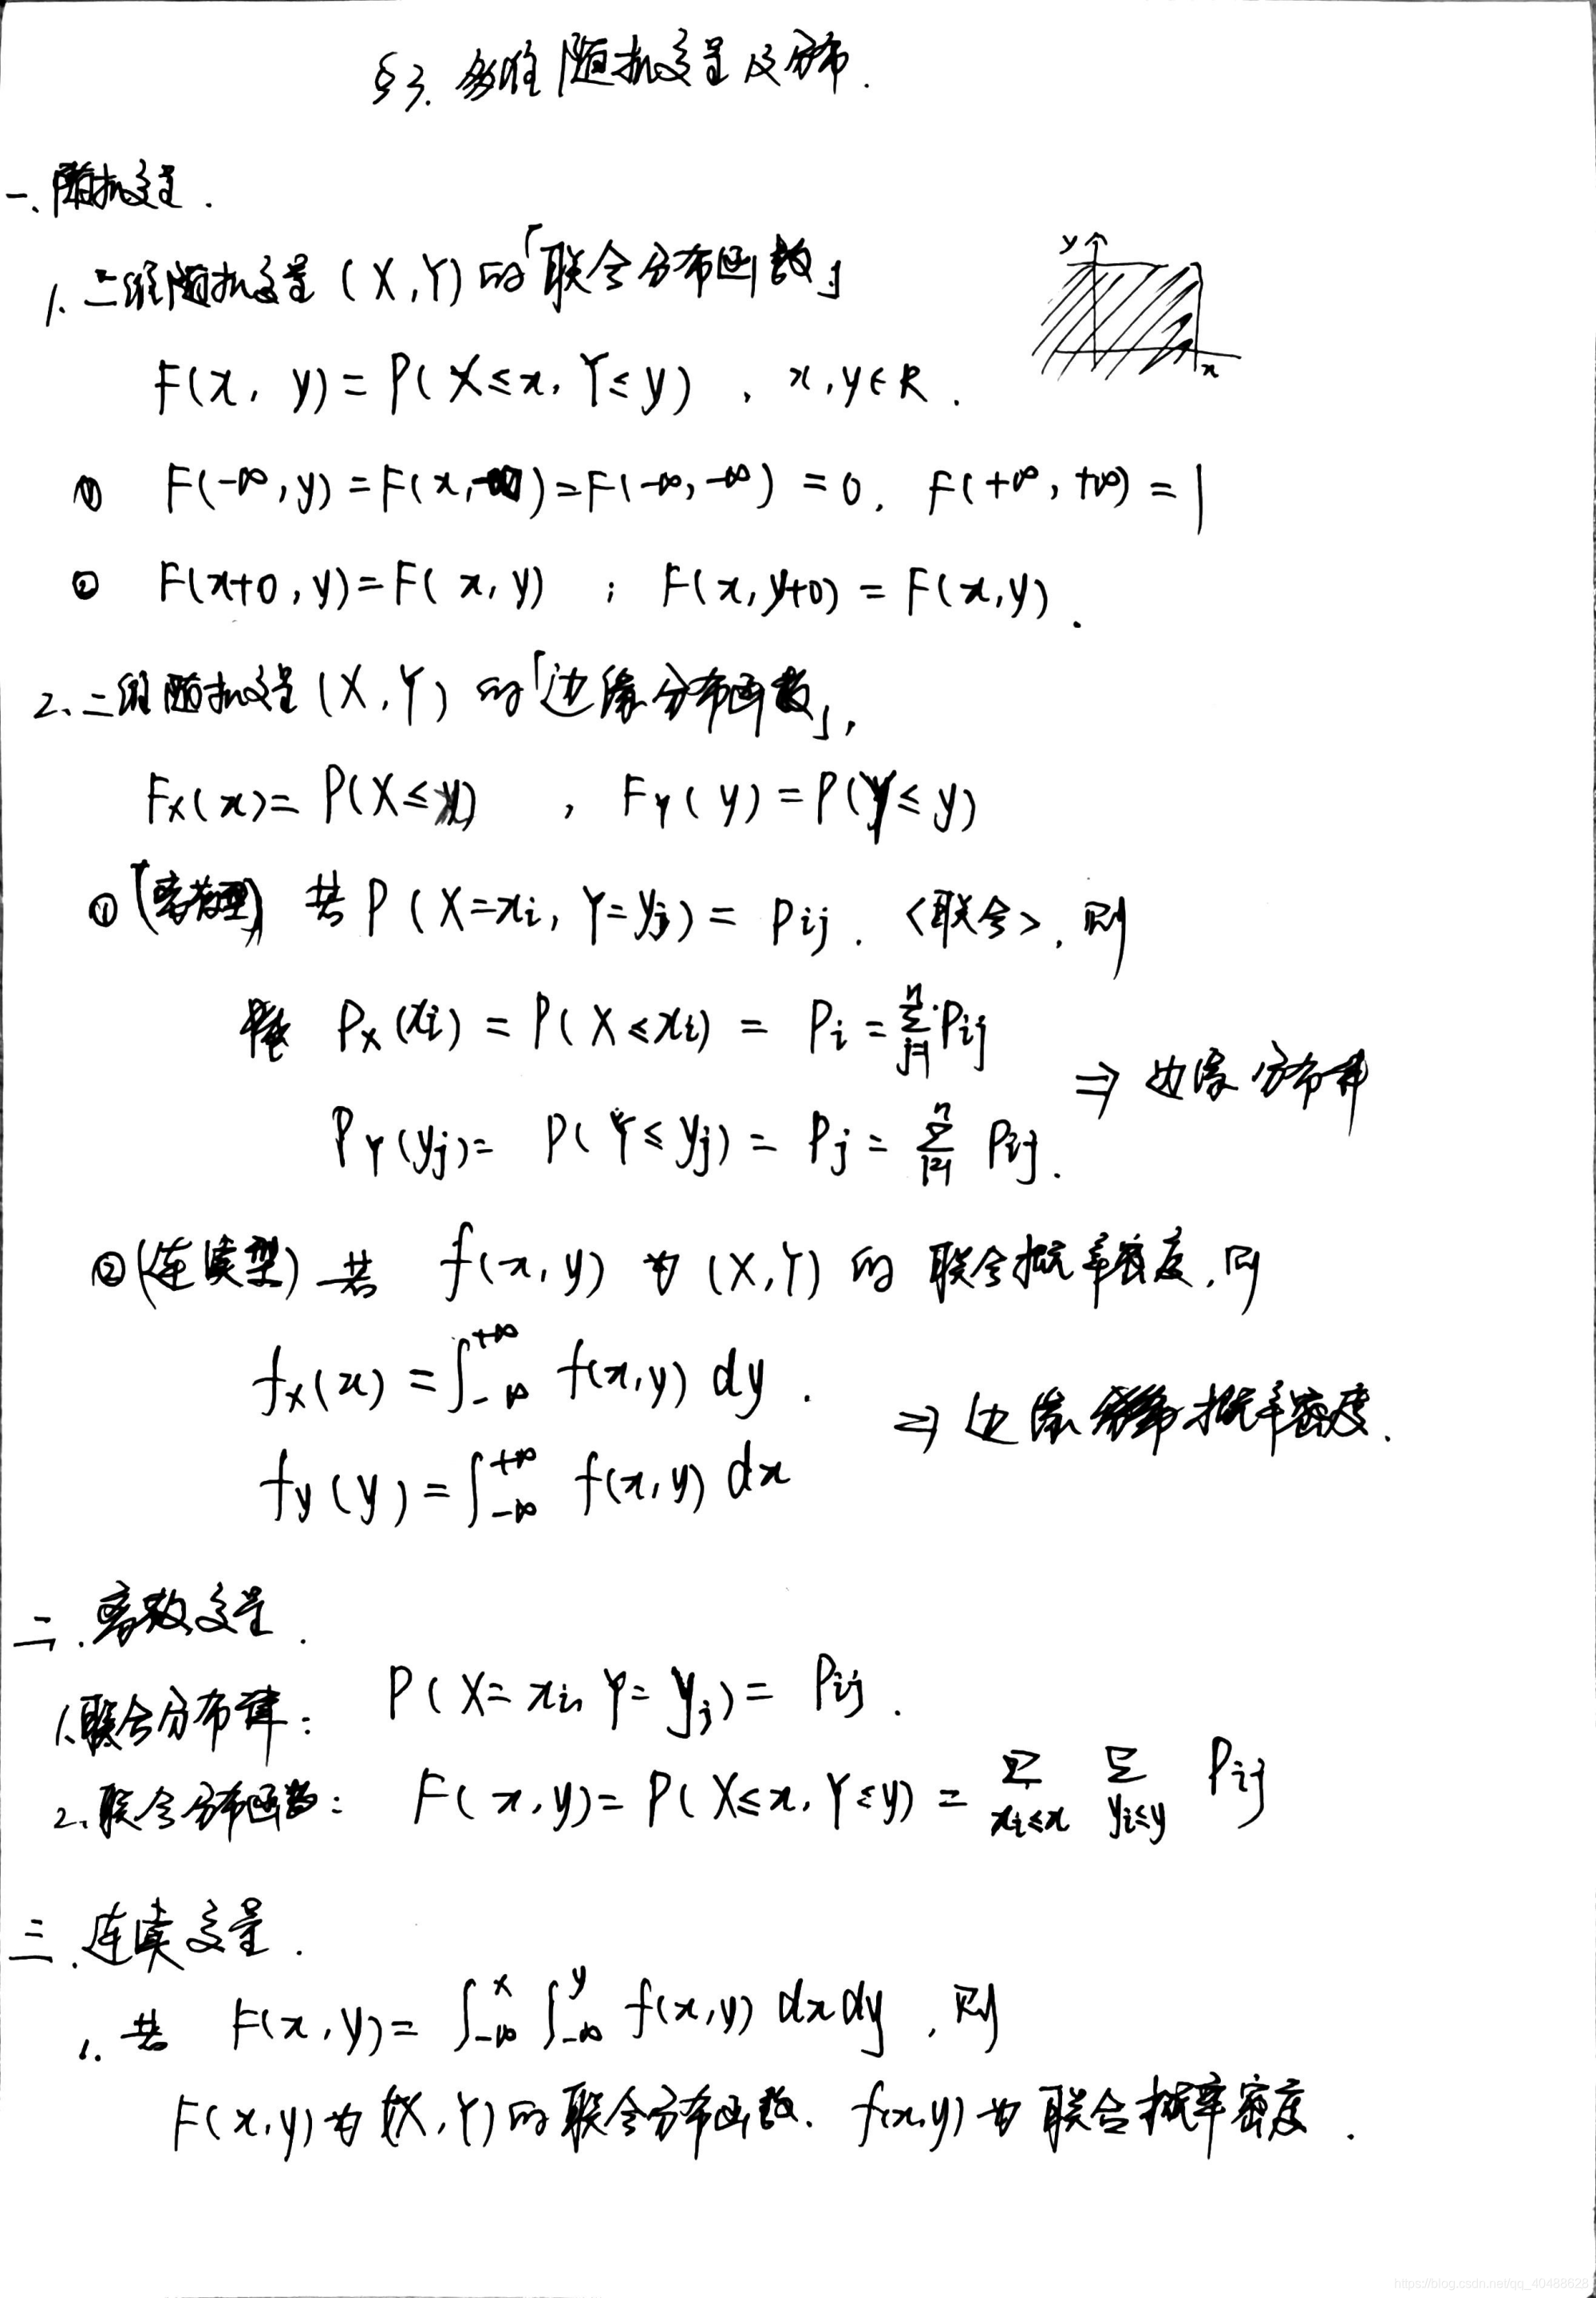 §3. 多维随机变量及分布.
一、随机变量.
1. 二维随机变量 (X,Y) 的「联合分布函数」
y
x
F(x, y) = P(X≤x, Y≤y), x,y∈R.
① F(-∞,y) = F(x,-∞) = F(-∞,-∞) = 0. F(+∞,+∞) = 1
② F(x+0,y) = F(x,y) ; F(x,y+0) = F(x,y).
2、二维随机变量 (X,Y) 的「边缘分布函数」,
F_X(x) = P(X≤x) , F_Y(y) = P(Y≤y)
① (离散型) 若 P(X=x_i, Y=y_j) = P_ij. <联合>, 则
P_X(x_i) = P(X≤x_i) = P_i = Σ_{j=1}^{n} P_ij
⇒ 边缘分布律
P_Y(y_j) = P(Y≤y_j) = P_j = Σ_{i=1}^{n} P_ij.
② (连续型) 若 f(x,y) 为 (X,Y) 的 联合概率密度, 则
f_X(x) = ∫_{-∞}^{+∞} f(x,y) dy.
⇒ 边缘概率密度.
f_y(y) = ∫_{-∞}^{+∞} f(x,y) dx
二. 离散变量.
1. 联合分布律: P(X=x_i, Y=y_j) = P_ij.
2. 联合分布函数: F(x,y) = P(X≤x, Y≤y) = Σ_{x_i≤x} Σ_{y_i≤y} P_ij
三. 连续变量.
1. 若 F(x,y) = ∫_{-∞}^{x} ∫_{-∞}^{y} f(x,y) dxdy, 则
F(x,y) 为 (X,Y) 的联合分布函数. f(x,y) 为 联合概率密度.
https://blog.csdn.net/qq_40488628